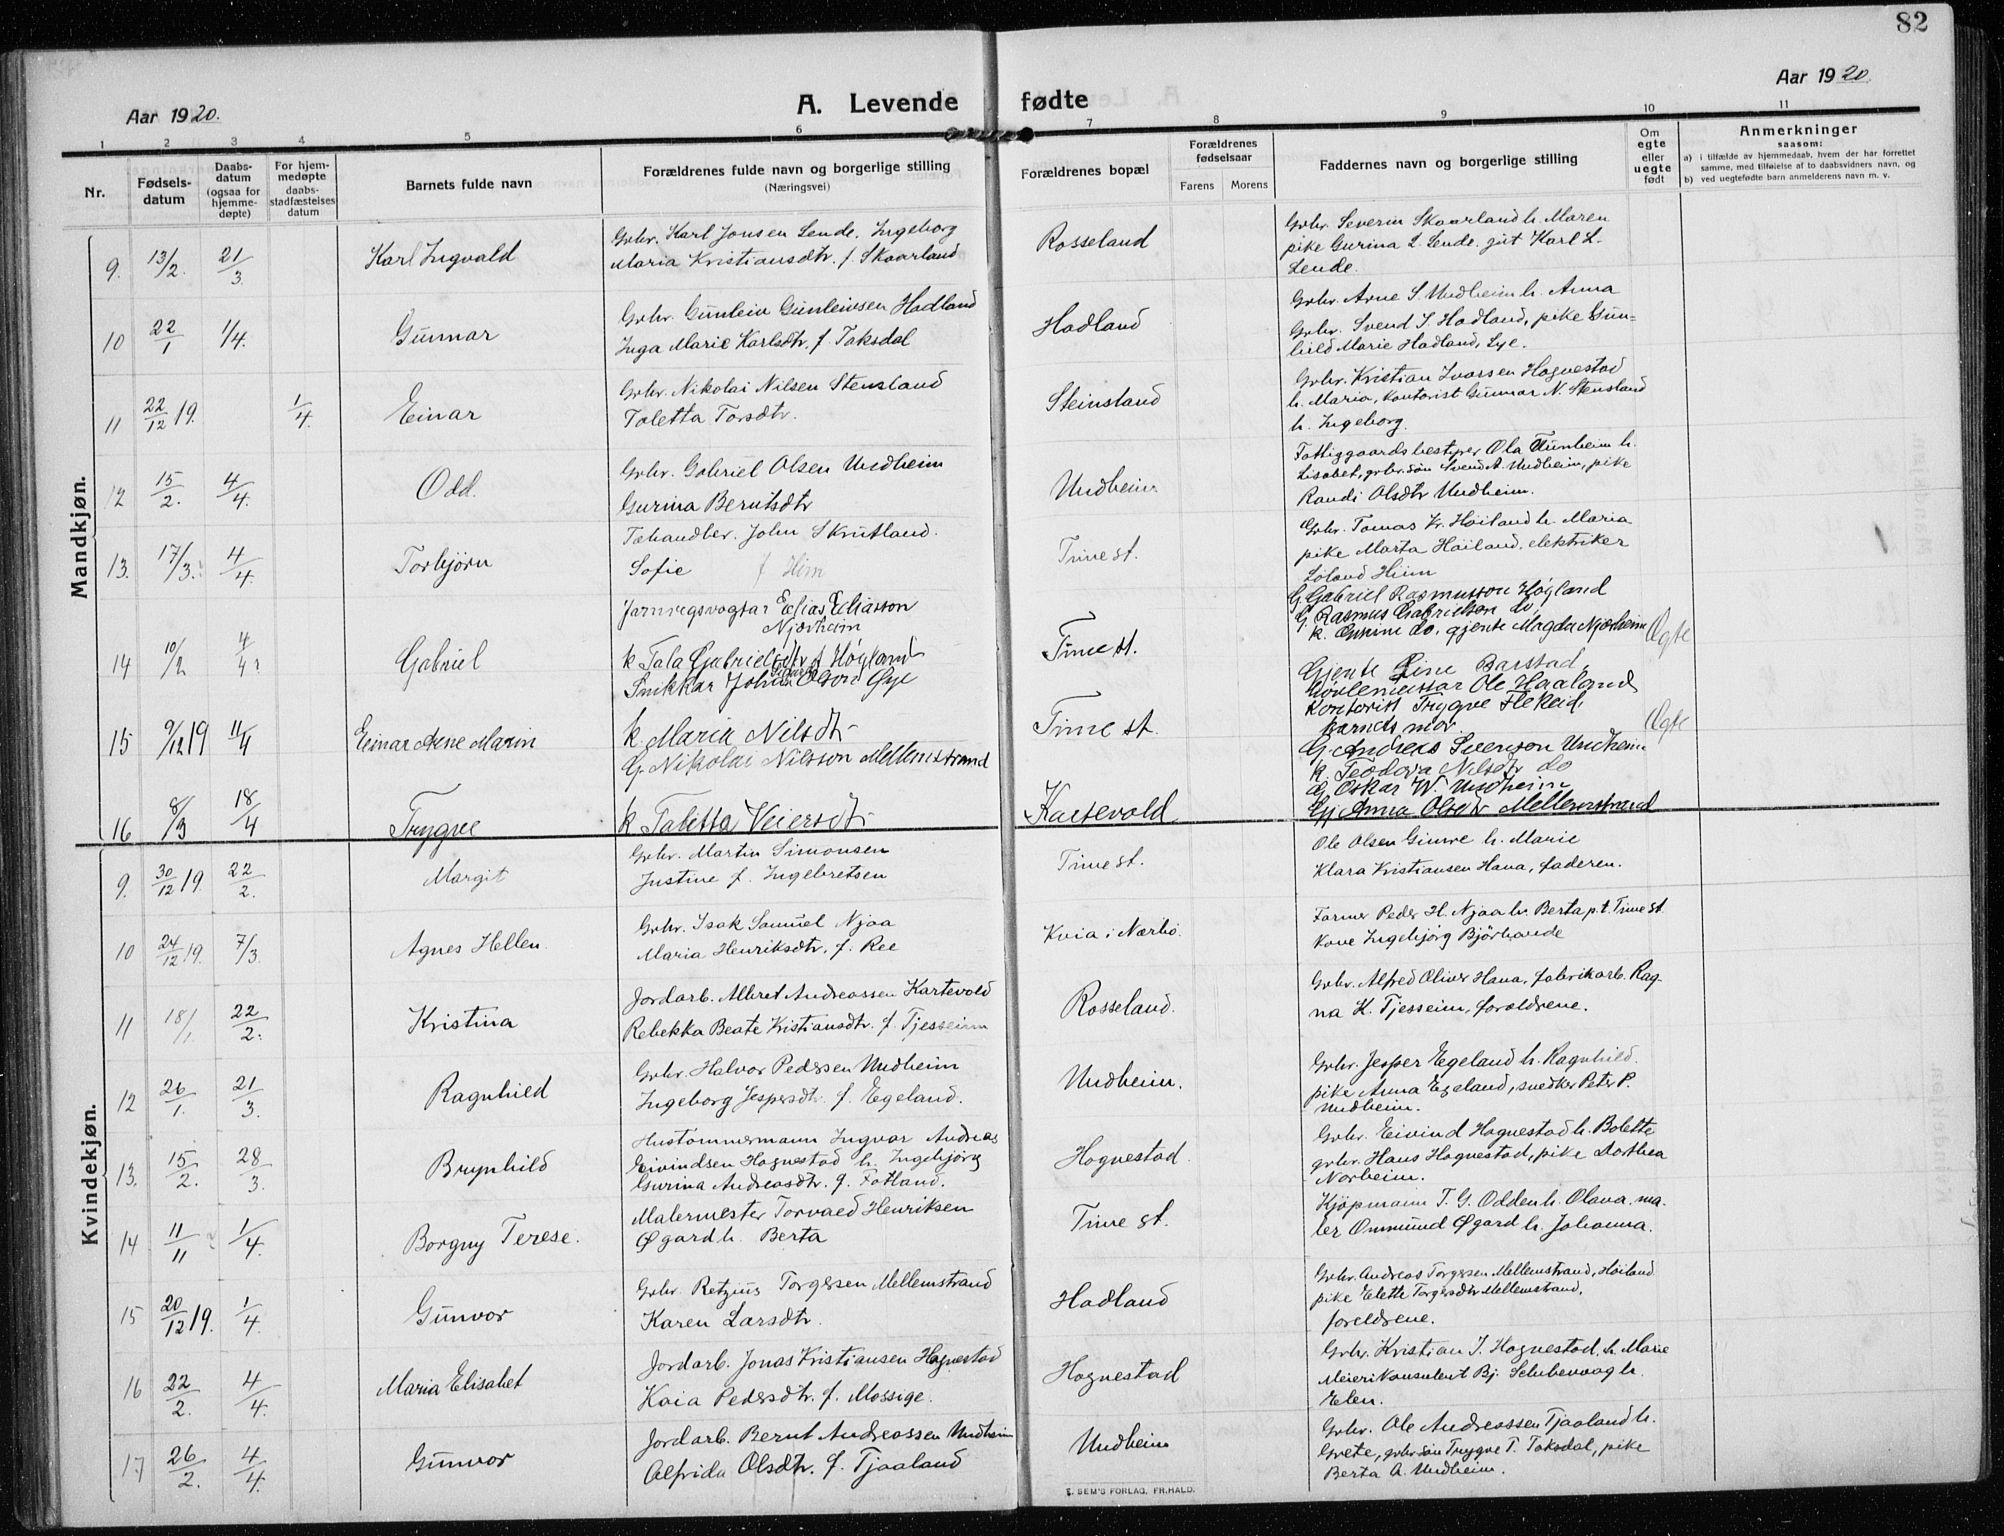 82
Aar 1920.
A. Levende fødte
Aar 1920.
1 2 3 4 5 6 7 8 9 10 11
Nr.
Fødsels-
datum
Daabs-
datum
(ogsaa for
hjemme-
døpte)
For hjem-
medøpte
daabs-
stadfæstelses
datum
Barnets fulde navn
Forældrenes fulde navn og borgerlige stilling
(Næringsvei)
Forældrenes bopæl
Forældrenes
fødselsaar
Farens Morens
Faddernes navn og borgerlige stilling
Om
egte
eller
uegte
født
Anmerkninger
saasom:
a) i tilfælde av hjemmedaab, hvem der har forrettet
samme, med tilføielse af to daabsvidners navn, og
b) ved uegtefødte barn anmelderens navn m. v.
Mandkjøn.
9. 13/2. 21/3 Karl Ingvald
Grbr. Karl Jonsen Lende. Ingeborg
Maria Kristiansdtr. f. Skaarland
Rosseland
Grbr. Severin Skaarland h. Maren
pike Gurina L. Lende. gut Karl L.
Lende.
10 22/1 1/4. Gunnar
Grbr. Gunleiv Gunleivsen Hadland
Inga Marie Karlsdtr. f. Taksdal
Hadland
Grbr. Arne S. Undheim h. Anna
Grbr. Svend S. Hadland, pike Gun=
hild Marie Hadland, Lye.
11 22/12 19. 1/4. Einar
Grbr. Nikolai Nilsen Stensland
Taletta Torsdtr.
Steinsland
Grbr. Kristian Ivarsen Hognestad
h. Maria, kontorist Gunnar N. Stensland
h. Ingeborg.
12 15/2. 4/4. Odd.
Grbr. Gabriel Olsen Undheim
Gurina Berntsdtr
Undheim
Fattiggaardsbestyrer Ola Tunheim h.
Lisabet, grbr.søn Svend A. Undheim, pike
Randi Olsdtr Undheim.
13. 17/3. 4/4. Torbjørn
John Skrutland.
Sofie f Him
Time st.
Grbr. Tomas Kr. Høiland h. Maria
pike Marta Høiland, elektriker
Loland Hiim
14 10/2 4/4 Gabriel
Jarnvegsvogtar Elias Eliasson
Njærheim
k Tala Gabrielsdtr f Høgland
Time st.
G. Gabriel Rasmusson Høgland
G. Rasmus Gabrielson do,
k. do. gjente Magda Njærheim
Ægte
15 9/12 19 11/4 Einar Arne Marin
Snikkar Johan Olson Øye
k. Maria Nilsdtr
Time st.
Gjente Line Barstad,
Ole Haaland
Kontorist Trygve Flekeid,
barnets mor.
Ægte
16 8/3 18/4 Trygve
G. Nikolai Nilsson Mellemstrand
k Taletta Veiersdtr
Kartevold
G. Andreas Svenson Undheim
k. Teodora Nilsdtr do
G Oskar W. Undheim
Gj. Anna Olsdtr Mellemstrand
Kvindekjøn.
9. 30/12 19. 22/2. Margit
Grbr. Martin Simonsen
Justine f. Ingebretsen
Time st.
Ole Olsen Gimre h. Marie
Klara Kristiansen Hana, faderen.
10 24/12 19. 7/3. Agnes Hellen.
Grbr. Isak Samuel Njaa
Maria Henriksdtr. f. Ree
Kvia i Nærbø.
Farmer Peder H. Njaa h. Berta p.t. Time st
Kone Ingebjørg Bjørhaude
11 18/1. 22/2. Kristina
Jordarb. Albret Andreassen Kartevold
Rebekka Beate Kristiansdtr. f. Tjesseim
Rosseland.
Grbr. Alfred Oliver Hana, fabrikarb. Rag-
na K. Tjesseim, forældrene.
12 26/1. 21/3. Ragnhild
Grbr. Halvor Pedersen Undheim
Ingeborg Jespersdtr. f. Egeland.
Undheim.
Grbr. Jesper Egeland h. Ragnhild.
pike Anna Egeland, snedker Peter P.
Undheim.
13. 15/2. 28/3. Brynhild
Hustømmermann Ingvar Andreas
Eivindsen Hognestad h. Ingebjørg
Gurina Andreasdtr. f. Fotland.
Hognestad.
Grbr. Eivind Hognestad h. Bolette
grbr. Hans Hognestad, pike Dorthea
Norheim.
14 11/11 1/4. Borgny Terese.
Malermester Torvald Henriksen
Øgard h. Berta
Time st.
Kjøpmann T. G. Odden h. Olava. ma-
ler Ommund Øgard h. Johanna.
15 20/12 19. 1/4. Gunvor
Grbr. Retzius Torgersen Mellemstrand
Karen Larsdtr.
Hadland
Grbr. Andreas Torgersen Mellemstrand, Høiland
pike Elette Torgersdtr Mellemstrand,
foreldrene.
16 22/2. 4/4. Maria Elisabet
Jordarb. Jonas Kristiansen Hognestad
Kaia Pedersdtr. f. Mossige.
Hognestad
Grbr. Kristian J. Hognestad, h. Marie
Meierikonsulent Bj. h.
Elen.
17 26/2. 4/4. Gunvor
Jordarb. Bernt Andreassen Undheim
Alfrida Olsdtr. f. Tjaaland
Undheim
Grbr. Ole Andreassen Tjaaland h.
Grete, grbr.søn Trygve T. Taksdal, pike
Berta A. Undheim.
E. SEM'S FORLAG, FR.HALD.